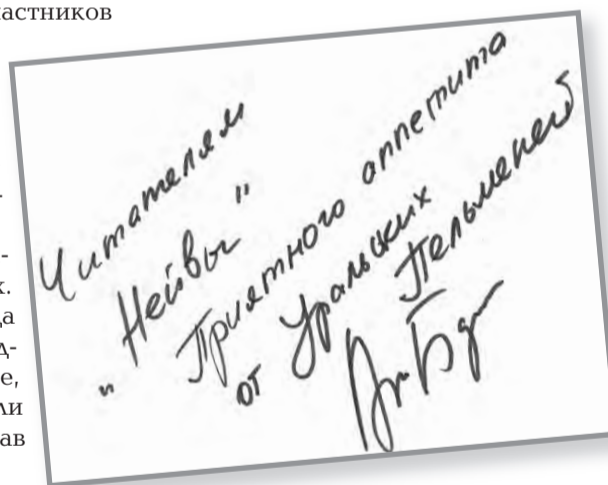 частников
-
-
х.
да
д-
е,
ли
ав
Читателям
"Нейвы"
Приятного аппетита
от Уральских
Пельменей